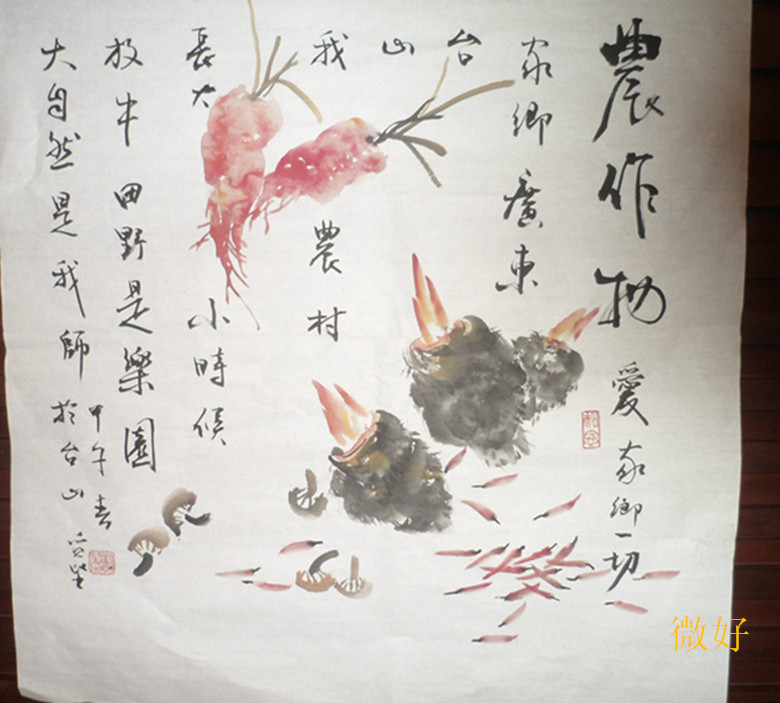 農作物愛家鄉一切
家鄉廣東
台
山
我農村
長大小時候
放牛田野是樂園
甲午春
大自然是我師於台山
微好